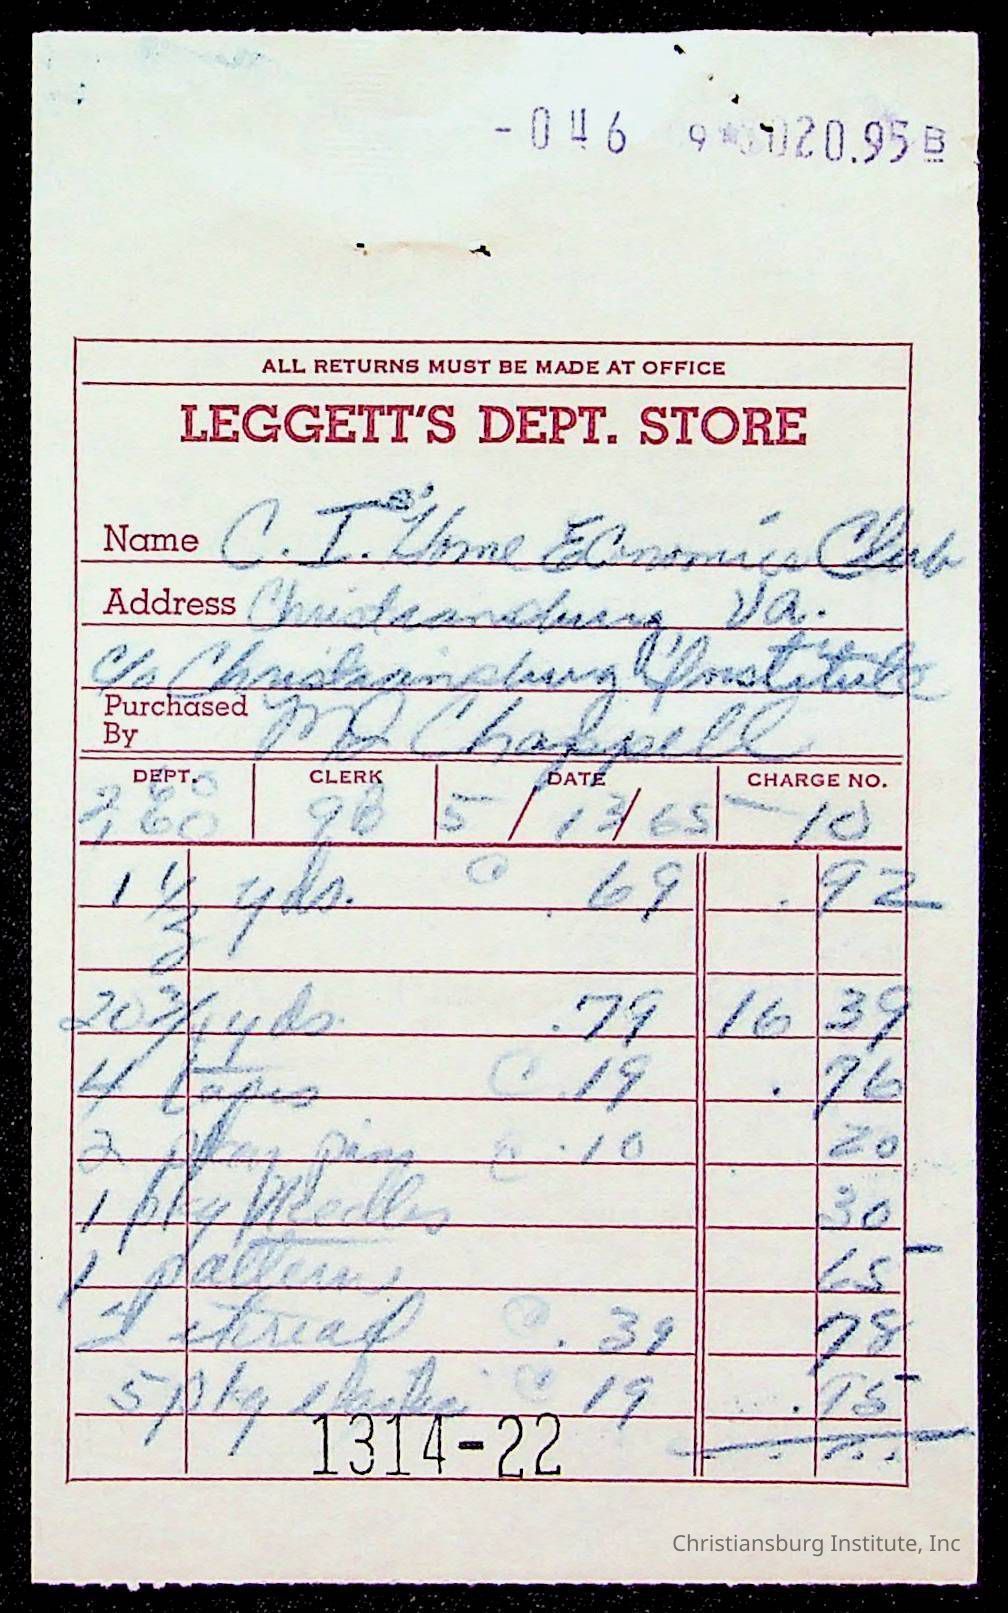 -046 9 020.95 B
ALL RETURNS MUST BE MADE AT OFFICE
LEGGETT'S DEPT. STORE
Name C. I. Home Economics Club
Address Christiansburg Va.
c/o Christiansburg Institute
Purchased By Chappell
DEPT. CLERK DATE CHARGE NO.
98 5/13/65 10
1 1/3 yds. @ .69 .92
20 3/4 yds. .79 16 39
4 tapes @ .19 .76
2 pins @ .10 20
1 pkg Needles 30
1 pattern 65
2 thread @ .39 78
5 pkg @ 19 .95
1314-22
Christiansburg Institute, Inc